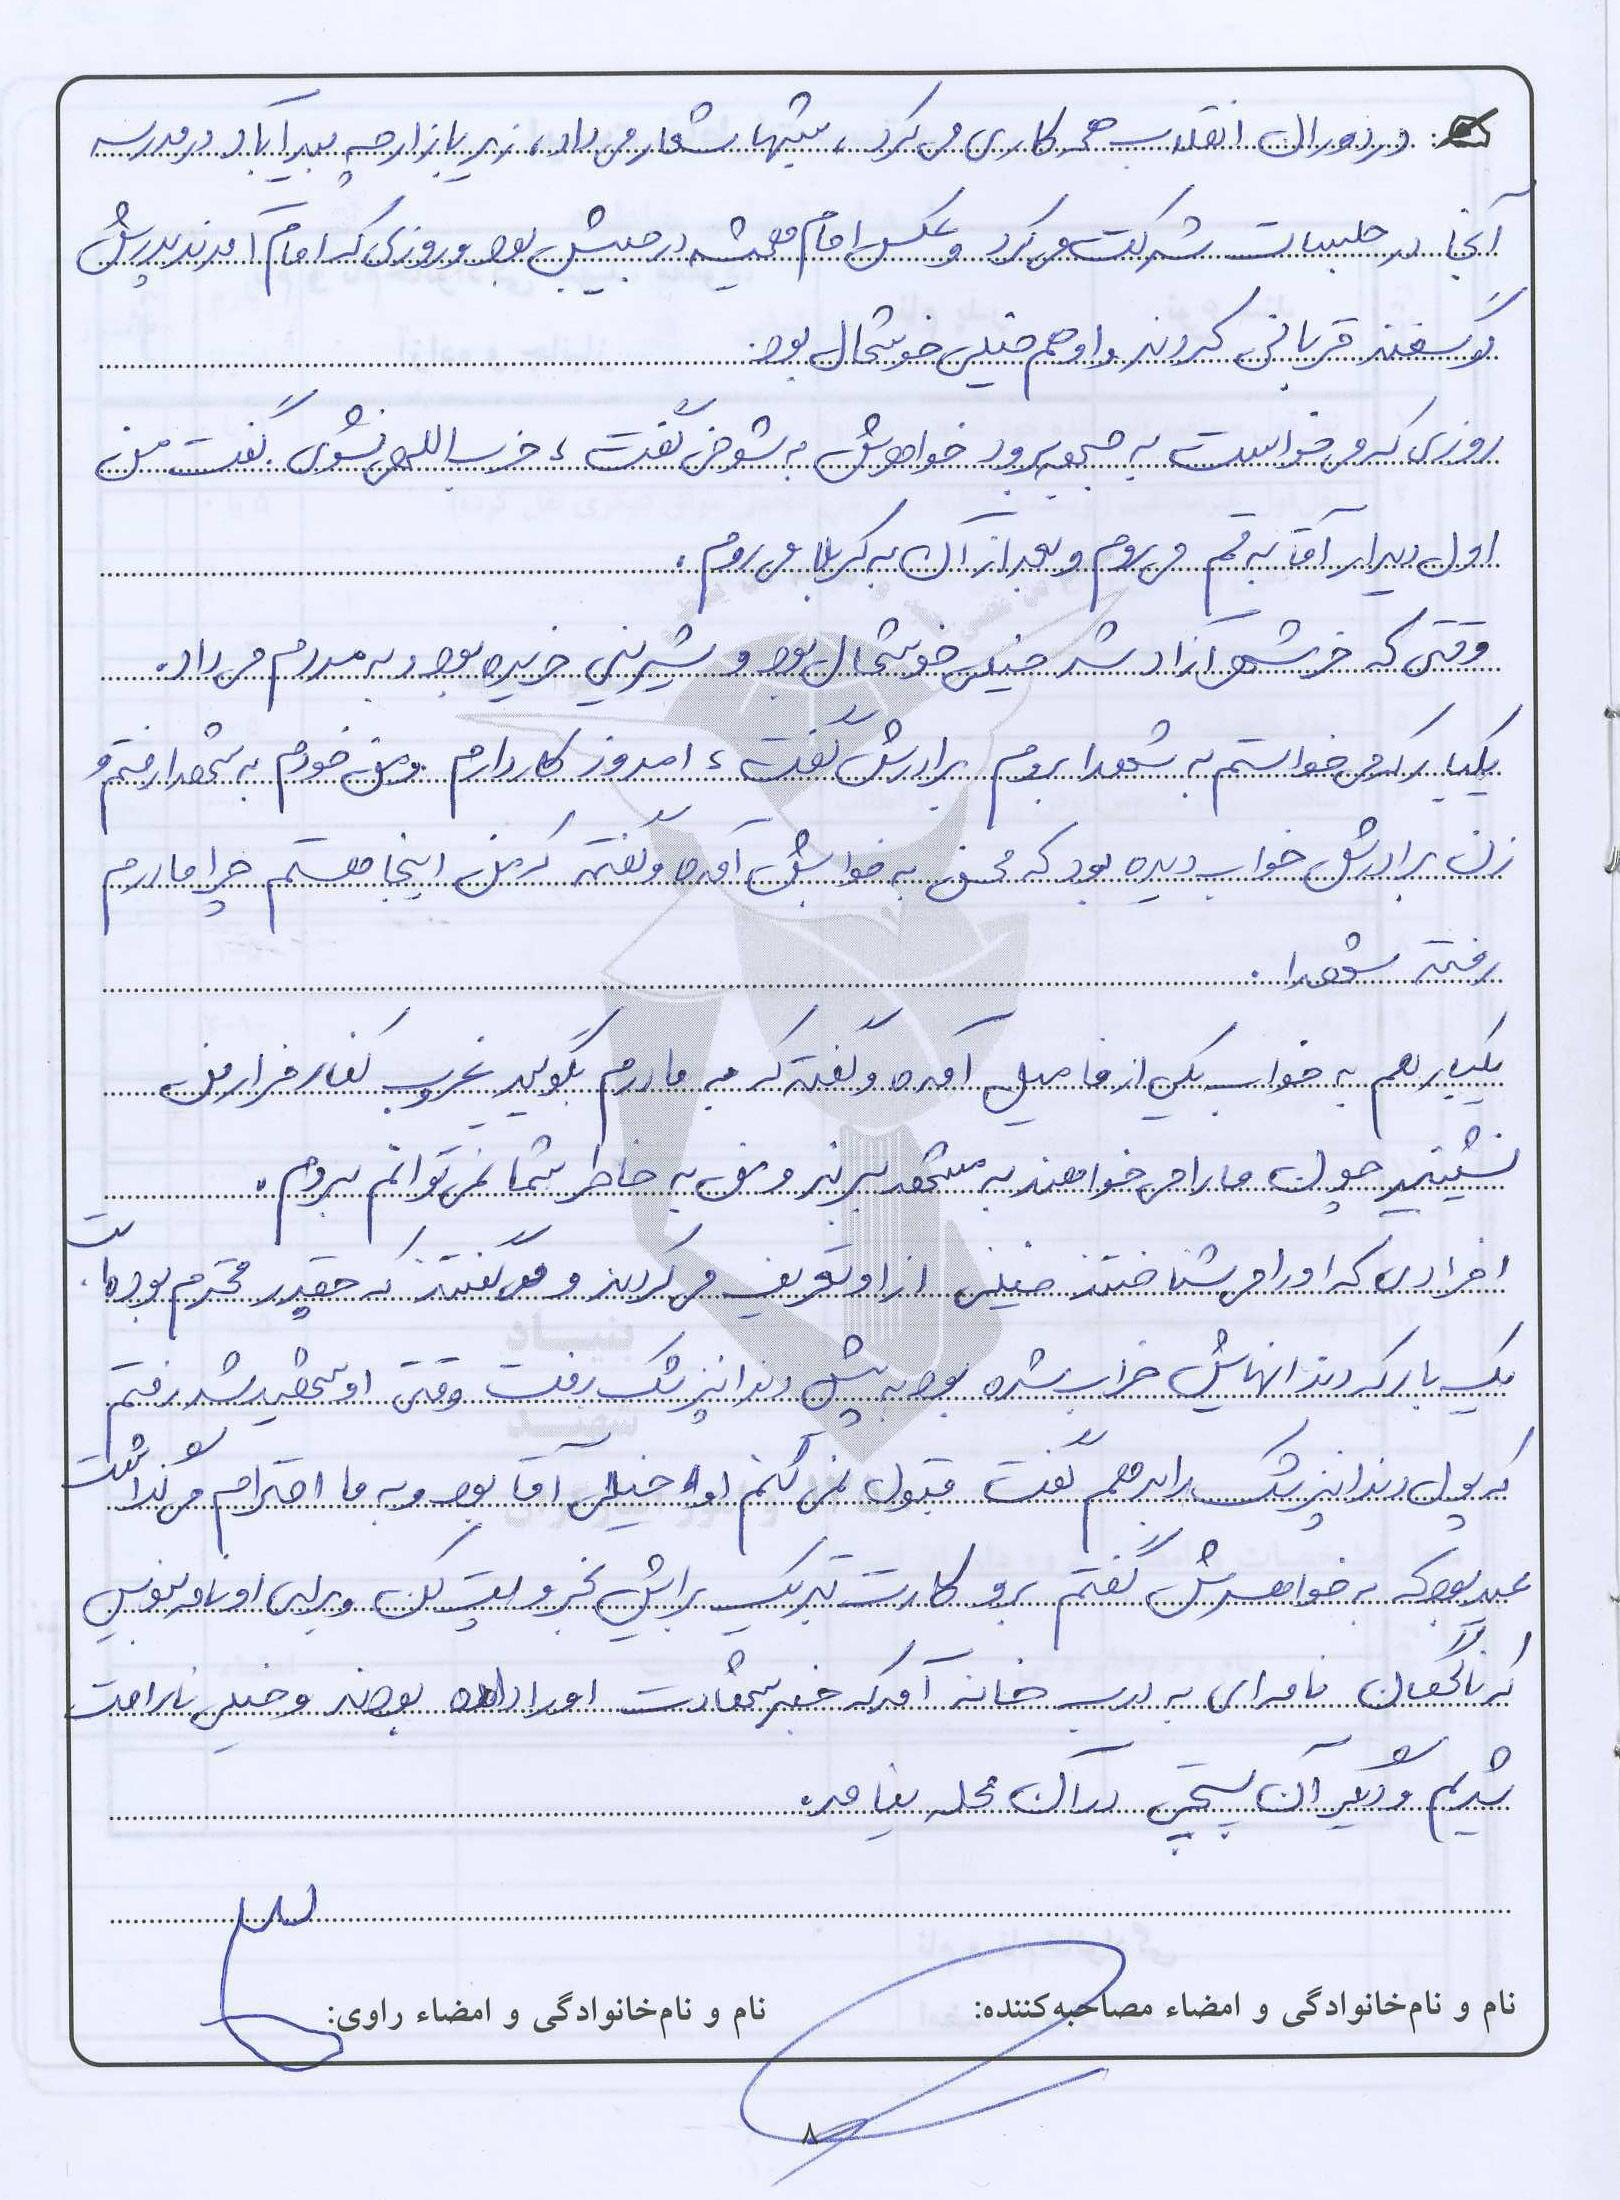 در دوران انقلاب هر کاری می کرد، شبها شعار می داد، زیر بازارچه بیدآباد در مدرسه
آنجا در جلسات شرکت می کرد و عکس امام همیشه در جیبش بود و روزی که امام آمدند پدرش
گوسفند قربانی کردند و او هم خیلی خوشحال بود.
روزی که می خواست به جبهه برود خواهرش به شوخی گفت، حزب اللهی نشوی. گفت من
اول دیدار آقا به قم می روم و بعد از آن به کربلا می روم.
وقتی که خرمشهر آزاد شد خیلی خوشحال بود و شیرینی خریده بود و به مردم می داد.
یکبار که می خواستم به شهدا بروم برادرش گفت، امروز کار دارم و من خودم به شهدا رفتم و
زن برادرش خواب دیده بود که محسن به خوابش آمده و گفته که من اینجا هستم چرا مادرم
رفته شهدا.
یکبار هم به خواب یکی از فامیل آمده و گفته که به مادرم بگویید غروب کنار مزار من
ننشینید چون ما را می خواهند به مشهد ببرند و من به خاطر شما نمی توانم بروم.
افرادی که او را می شناختند خیلی از او تعریف می کردند و می گفتند که چقدر محترم بوده است.
یک بار که دندانهایش خراب شده بود به پیش دندانپزشک رفت وقتی او شهید شد رفتم
که پول دندانپزشک را بدهم گفت قبول نمی کنم او خیلی آقا بود و به ما احترام می گذاشت
عید بود که به خواهرش گفتم برو کارت تبریک برایش بخر و پست کن و برای او نامه بنویس
که ناگهان نامه ای به درب خانه آمد که خبر شهادت او را داده بودند و خیلی ناراحت
شدیم و دیگر آن پستچی در آن محله نیامد.
نام و نام‌خانوادگی و امضاء مصاحبه‌کننده:
نام و نام‌خانوادگی و امضاء راوی:
۸